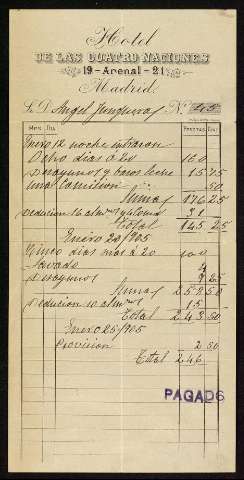 Hotel
DE LAS CUATRO NACIONES
19 - Arenal - 21
Madrid.
S. D. Angel Junquera Nº 25
Mes Día Pesetas Cts
Enero 12 noche entraron
Ocho dias a 20 160
Desayunos y vasos leche 15 75
una Comision 50
Suma 176 25
deducion 16 alm y 31
Total 145 25
Enero 20/905
Cinco dias mas a 20 100
Lavado 4
Desayunos 25
Suma 252 50
deducion 10 alm 15
Total 243 50
Enero 25/905
Provision 2 50
Total 246
PAGADO